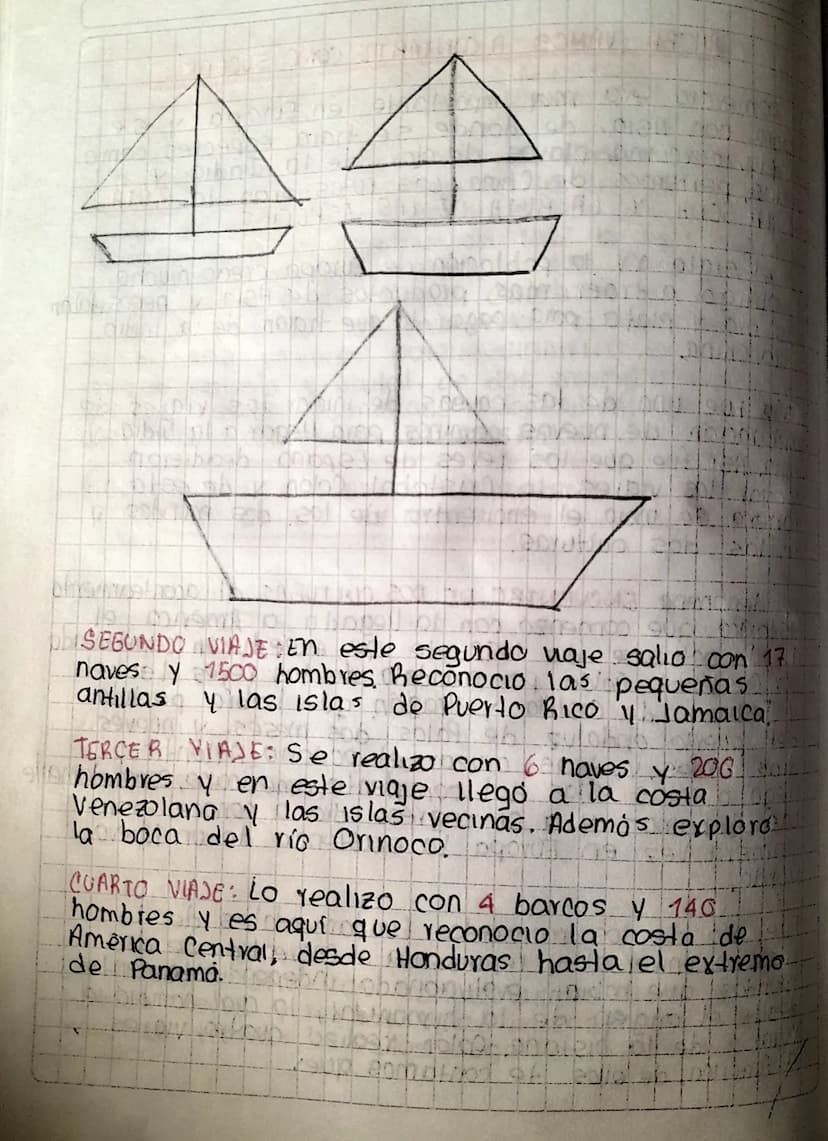 SEGUNDO VIAJE: En este segundo viaje salio con 17
naves y 1500 hombres. Reconocio las pequeñas
antillas y las islas de Puerto Rico y Jamaica.
TERCER VIAJE: Se realizo con 6 naves y 200
hombres y en este viaje llegó a la costa
Venezolana y las islas vecinas. Además exploró
la boca del río Orinoco.
CUARTO VIAJE: Lo realizo con 4 barcos y 140
hombres y es aquí que reconocio la costa de
América Central, desde Honduras hasta el extremo
de Panamá.